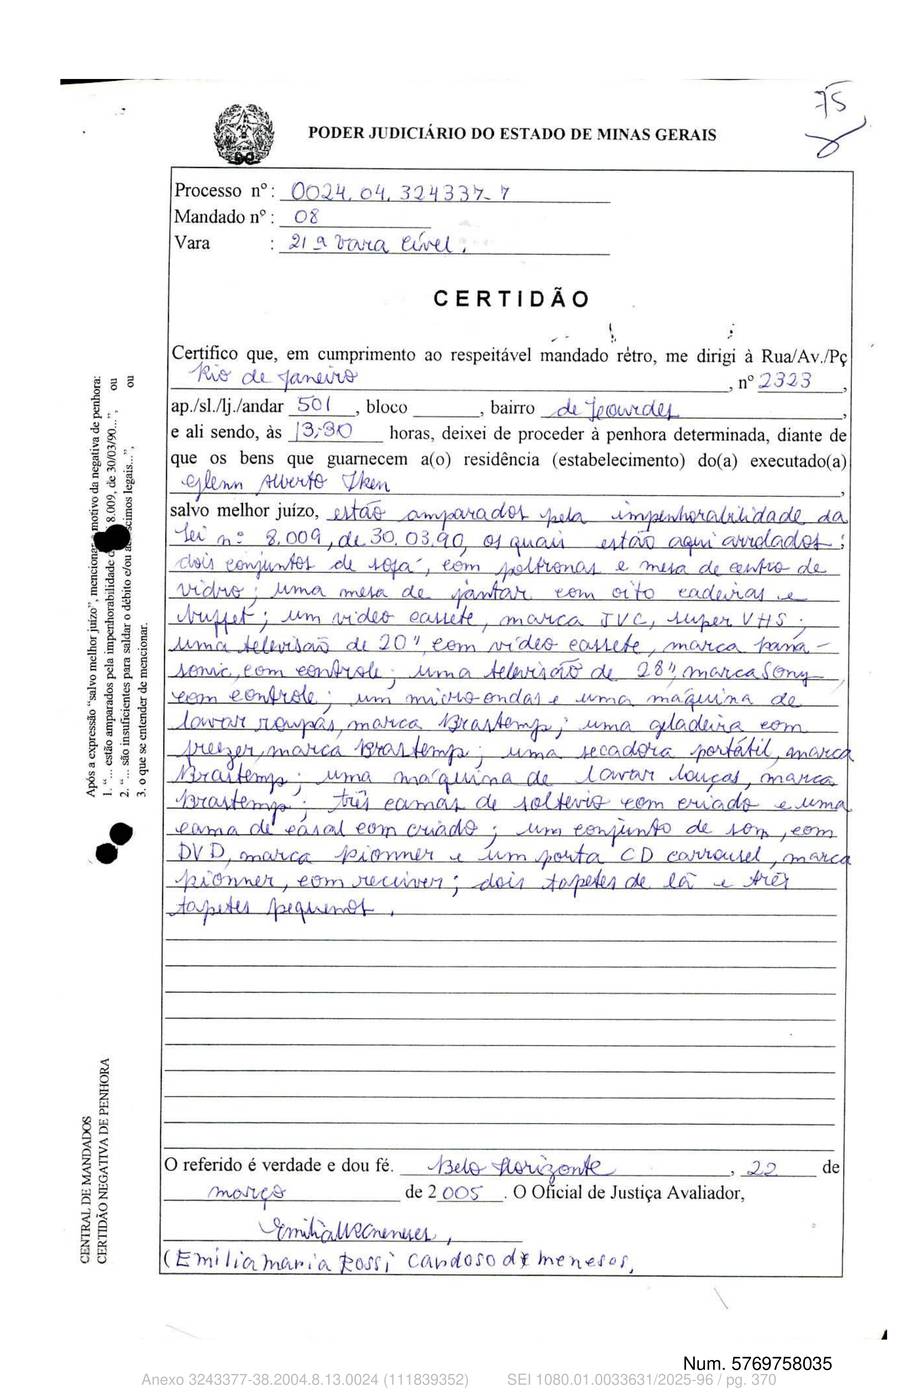 75
PODER JUDICIÁRIO DO ESTADO DE MINAS GERAIS
Processo nº: 0024.04.324337-7
Mandado nº: 08
Vara : 21ª Vara Cível.
CERTIDÃO
Certifico que, em cumprimento ao respeitável mandado retro, me dirigi à Rua/Av./Pç
Rio de Janeiro, nº 2323,
ap./sl./lj./andar 501, bloco , bairro de Lourdes,
e ali sendo, às 13:30 horas, deixei de proceder à penhora determinada, diante de
que os bens que guarnecem a(o) residência (estabelecimento) do(a) executado(a)
Glenn Alberto Iken,
salvo melhor juízo, estão amparados pela impenhorabilidade da
Lei nº 8.009, de 30.03.90, os quais estão aqui arrolados:
dois conjuntos de sofá, com poltronas e mesa de centro de
vidro; uma mesa de jantar com oito cadeiras e
buffet; um video cassete, marca JVC, super VHS;
uma televisão de 20", com vídeo cassete, marca pana-
sonic, com controle; uma televisão de 28", marca Sony
com controle; um microondas e uma máquina de
lavar roupas, marca Brastemp; uma geladeira com
freezer, marca Brastemp; uma secadora portátil, marca
Brastemp; uma máquina de lavar louças, marca
Brastemp; três camas de solteiro com criado e uma
cama de casal com criado; um conjunto de som, com
DVD, marca pionner e um porta CD carrousel, marca
pionner, com receiver; dois tapetes de lã e três
tapetes pequenos.
O referido é verdade e dou fé. Belo Horizonte, 22 de
março de 2005. O Oficial de Justiça Avaliador,
(Emilia maria Rossi Cardoso de meneses,
Após a expressão "salvo melhor juízo", mencionar o motivo da negativa de penhora:
1. "... estão amparados pela impenhorabilidade 8.009, de 30/03/90...", ou
2. "... são insuficientes para saldar o débito e/ou legais...", ou
3. o que se entender de mencionar.
CENTRAL DE MANDADOS
CERTIDÃO NEGATIVA DE PENHORA
Num. 5769758035
Anexo 3243377-38.2004.8.13.0024 (111839352) SEI 1080.01.0033631/2025-96 / pg. 370